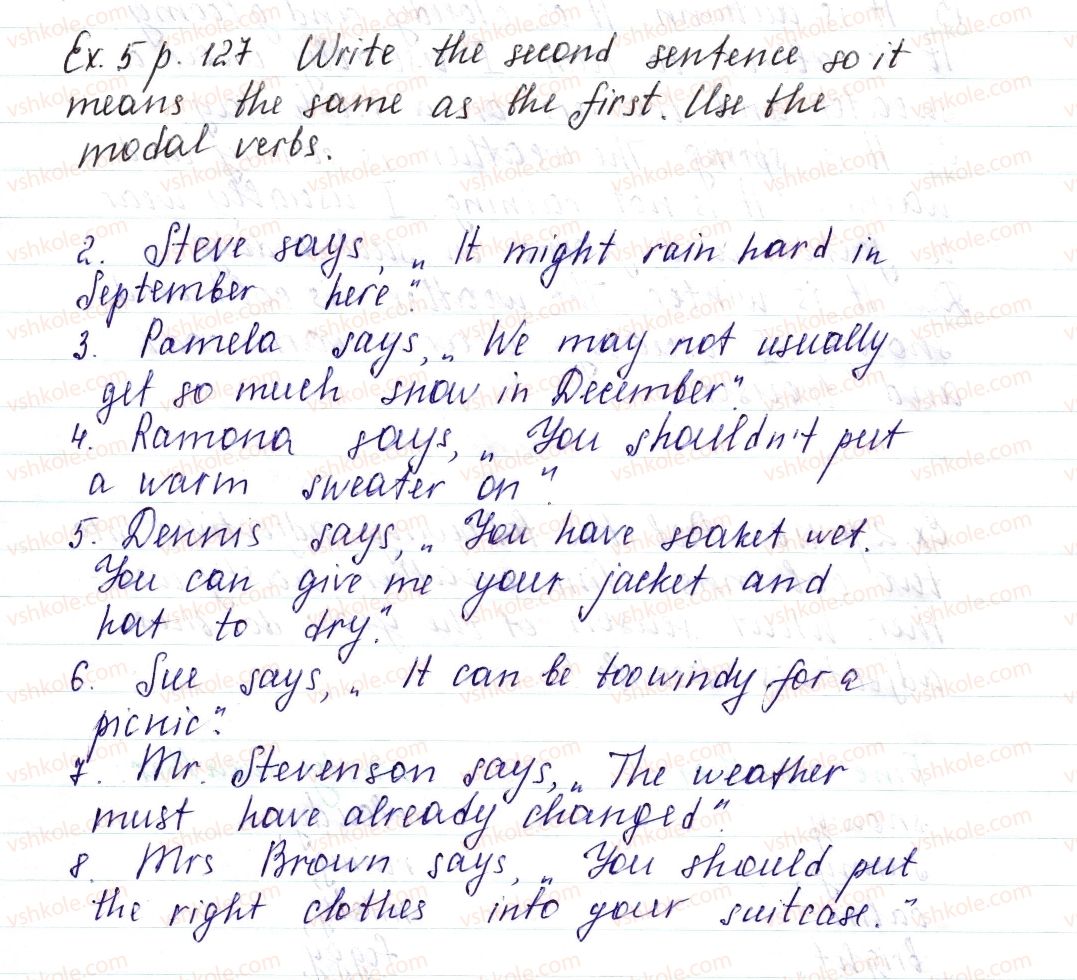 Ex. 5 p. 127 Write the second sentence so it
means the same as the first. Use the
modal verbs.
2. Steve says, „ It might rain hard in
September here."
3. Pamela says, „ We may not usually
get so much snow in December".
4. Ramona says, „ You shouldn't put
a warm sweater on".
5. Dennis says, „ You have soaket wet.
You can give me your jacket and
hat to dry."
6. Sue says, „ It can be too windy for a
picnic".
7. Mr. Stevenson says, „ The weather
must have already changed".
8. Mrs Brown says, „ You should put
the right clothes into your suitcase."